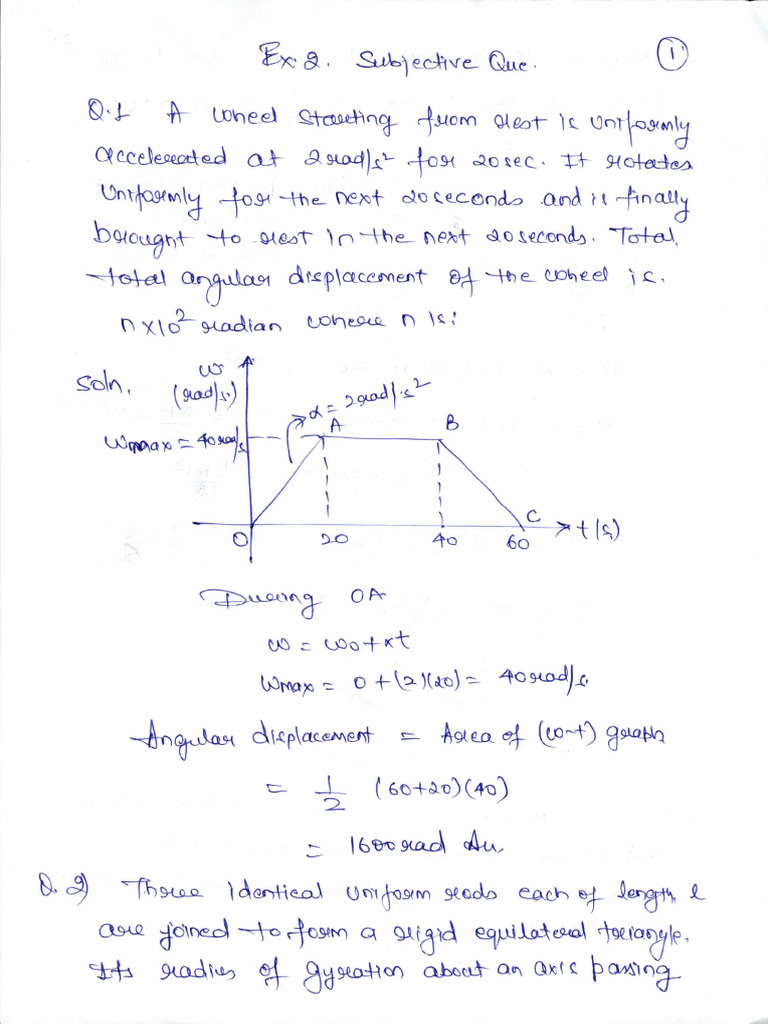 Ex.2. Subjective Que.
1
Q.1 A wheel starting from rest is uniformly
accelerated at 2 rad/s² for 20 sec. It rotates
uniformly for the next 20 seconds and is finally
brought to rest in the next 20 seconds. Total
total angular displacement of the wheel is.
n×10² radian where n is:
Soln.
ω
(rad/s)
α = 2 rad/s²
ωmax = 40 rad/s
A
B
C
O
20
40
60
t(s)
During OA
ω = ω0 + αt
ωmax = 0 + (2)(20) = 40 rad/s
Angular displacement = Area of (ω-t) graph
= 1/2 (60+20)(40)
= 1600 rad Ans
Q.2) Three identical uniform rods each of length l
are joined to form a rigid equilateral triangle.
Its radius of gyration about an axis passing